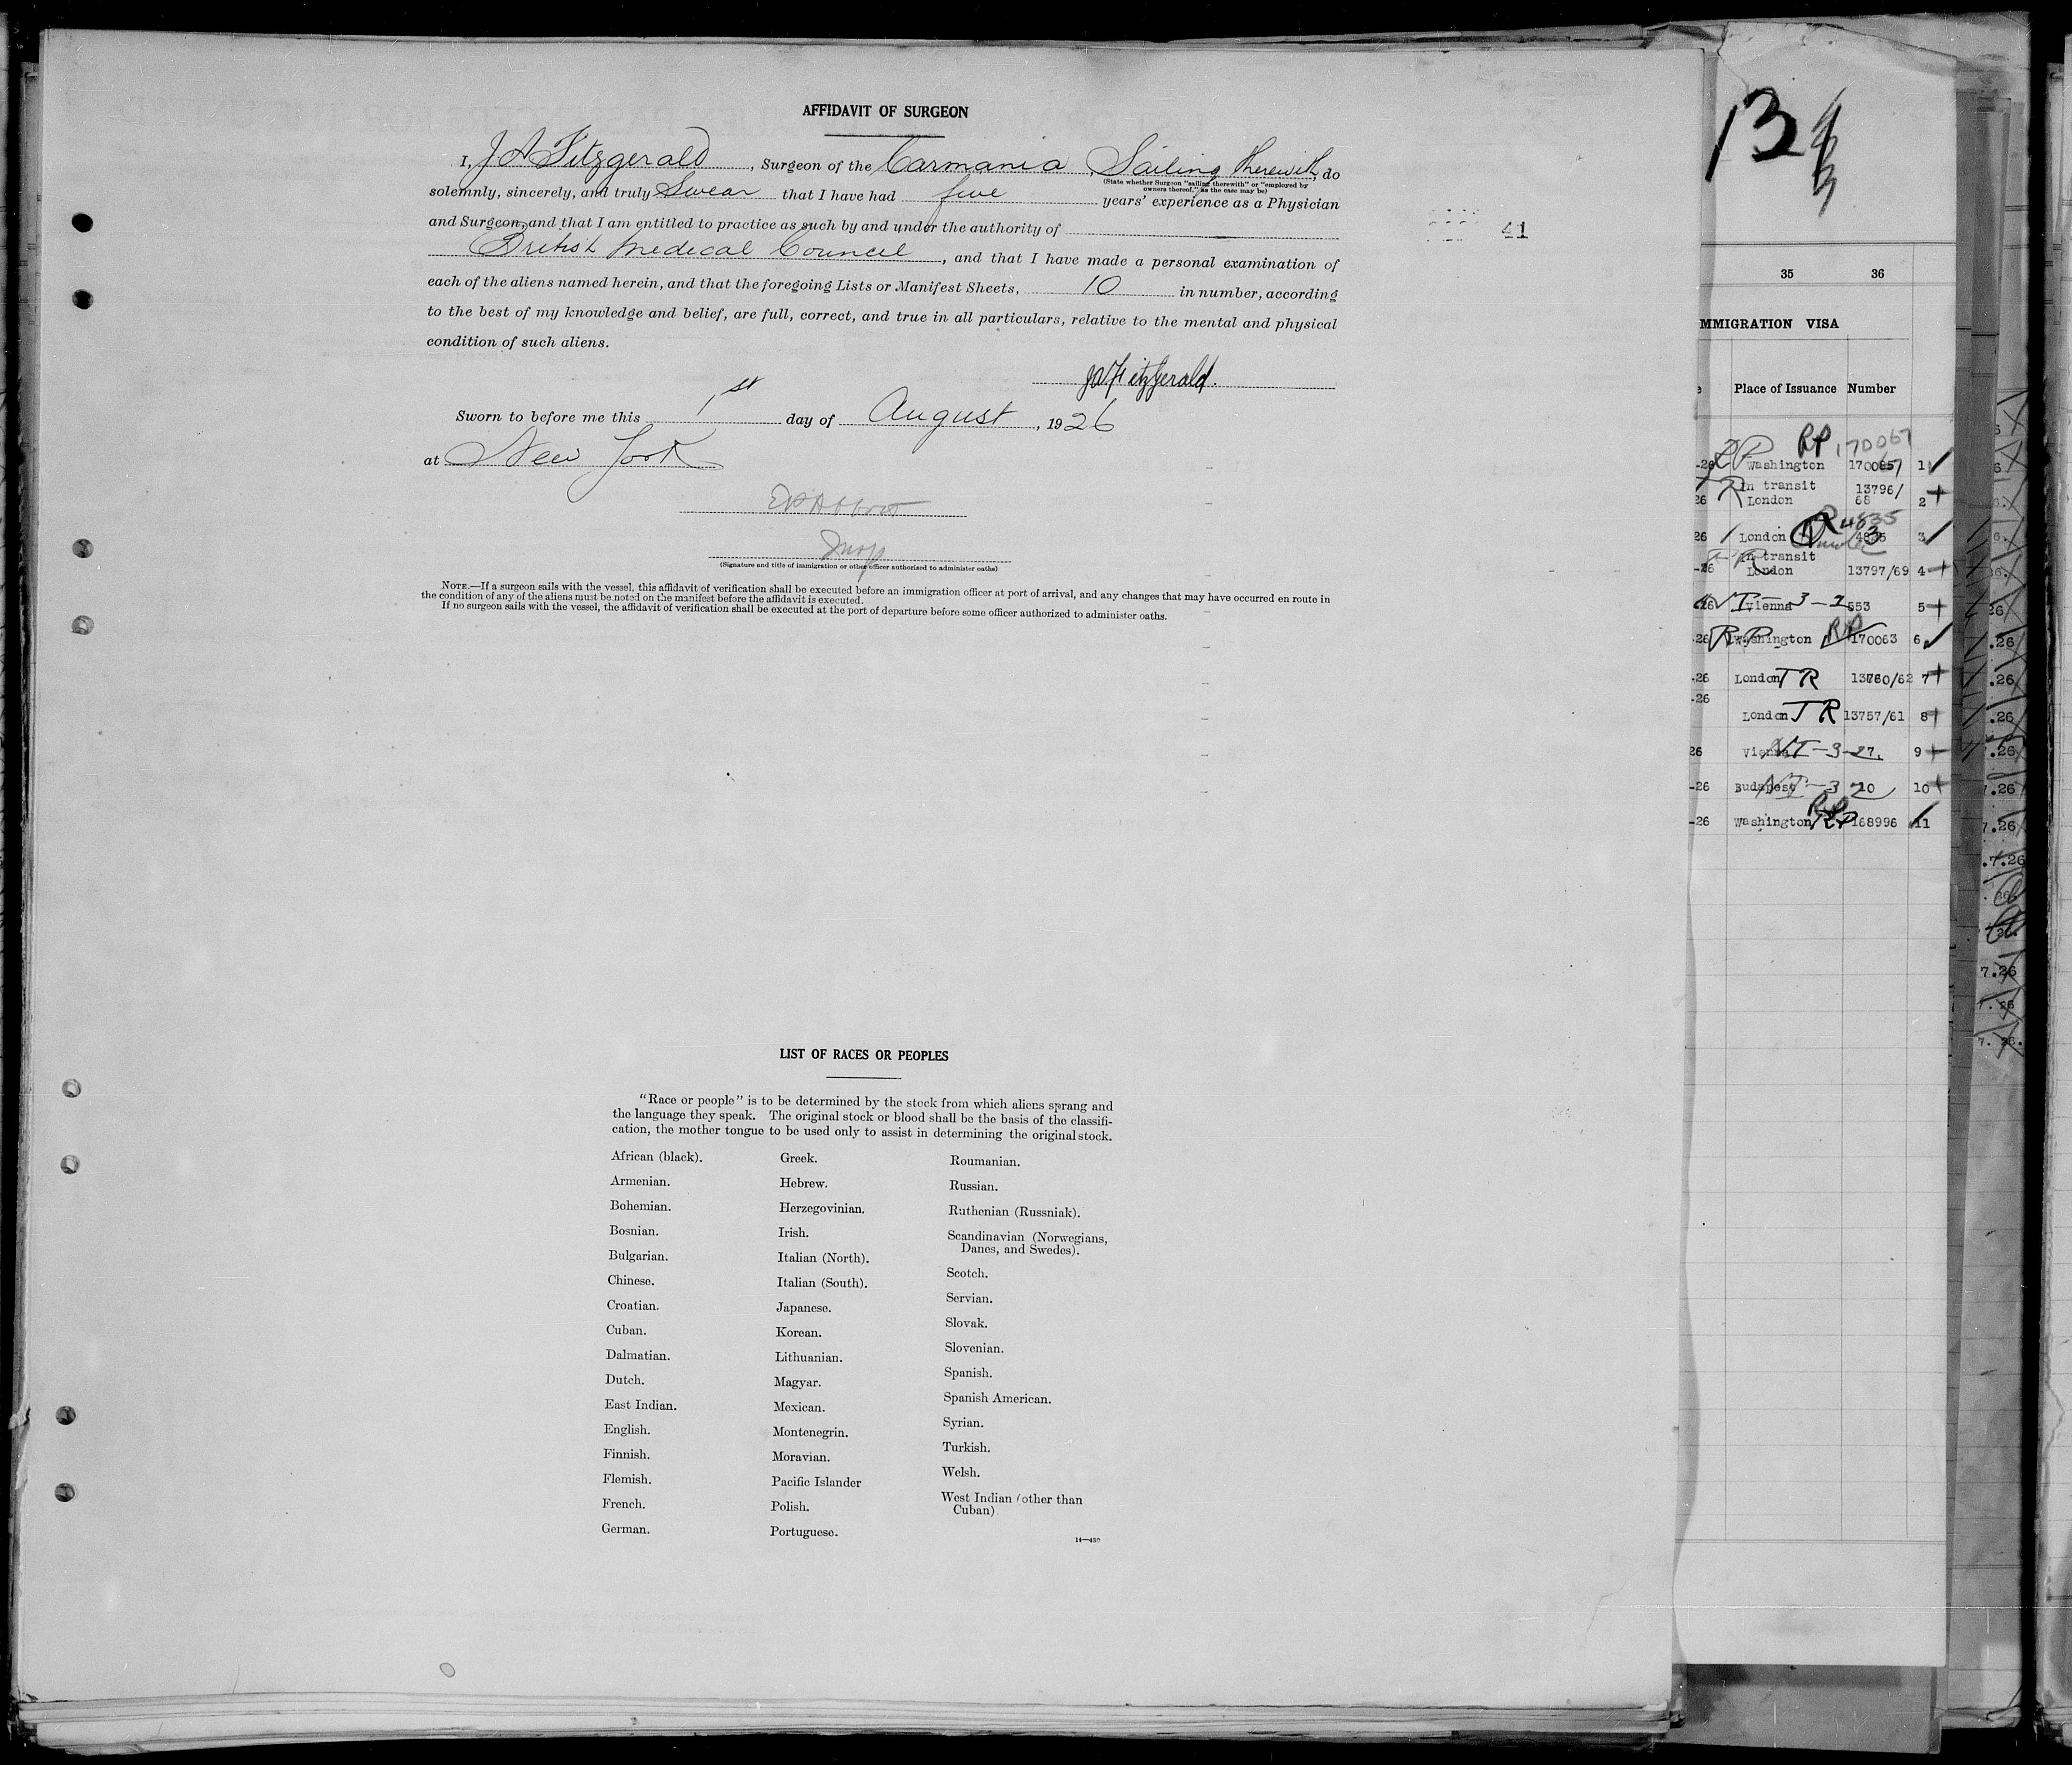 AFFIDAVIT OF SURGEON
I, J A Fitzgerald, Surgeon of the Carmania, Sailing therewith, do
(State whether Surgeon "sailing therewith" or "employed by
owners thereof," as the case may be)
solemnly, sincerely, and truly Swear that I have had five years' experience as a Physician
and Surgeon, and that I am entitled to practice as such by and under the authority of
British Medical Council, and that I have made a personal examination of
each of the aliens named herein, and that the foregoing Lists or Manifest Sheets, 10 in number, according
to the best of my knowledge and belief, are full, correct, and true in all particulars, relative to the mental and physical
condition of such aliens.
J A Fitzgerald.
Sworn to before me this 1st day of August, 1926
at New York
(Signature and title of immigration or other officer authorized to administer oaths)
NOTE.—If a surgeon sails with the vessel, this affidavit of verification shall be executed before an immigration officer at port of arrival, and any changes that may have occurred en route in
the condition of any of the aliens must be noted on the manifest before the affidavit is executed.
If no surgeon sails with the vessel, the affidavit of verification shall be executed at the port of departure before some officer authorized to administer oaths.
41
LIST OF RACES OR PEOPLES
"Race or people" is to be determined by the stock from which aliens sprang and
the language they speak. The original stock or blood shall be the basis of the classifi-
cation, the mother tongue to be used only to assist in determining the original stock.
African (black).
Armenian.
Bohemian.
Bosnian.
Bulgarian.
Chinese.
Croatian.
Cuban.
Dalmatian.
Dutch.
East Indian.
English.
Finnish.
Flemish.
French.
German.
Greek.
Hebrew.
Herzegovinian.
Irish.
Italian (North).
Italian (South).
Japanese.
Korean.
Lithuanian.
Magyar.
Mexican.
Montenegrin.
Moravian.
Pacific Islander
Polish.
Portuguese.
Roumanian.
Russian.
Ruthenian (Russniak).
Scandinavian (Norwegians,
Danes, and Swedes).
Scotch.
Servian.
Slovak.
Slovenian.
Spanish.
Spanish American.
Syrian.
Turkish.
Welsh.
West Indian (other than
Cuban)
13
35 36
MMIGRATION VISA
Place of Issuance Number
RP 170067
-26 RP Washington 1
in transit 13796/
26 London 68 2
26 London 3
in transit
-26 London 13797/69 4
26 Vienna 553 5
-26 RP Washington RP 170063 6
-26 London TR 7
-26
London TR 13757/61 8
26 Vienna 9
-26 Budapest 10
-26 Washington RP 168996 11